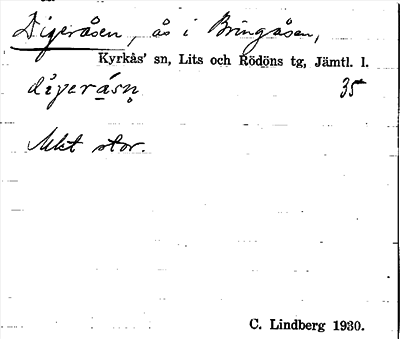 Digeråsen, ås i Bringåsen,
Kyrkås' sn, Lits och Rödöns tg, Jämtl. l.
35
Mkt stor.
C. Lindberg 1930.